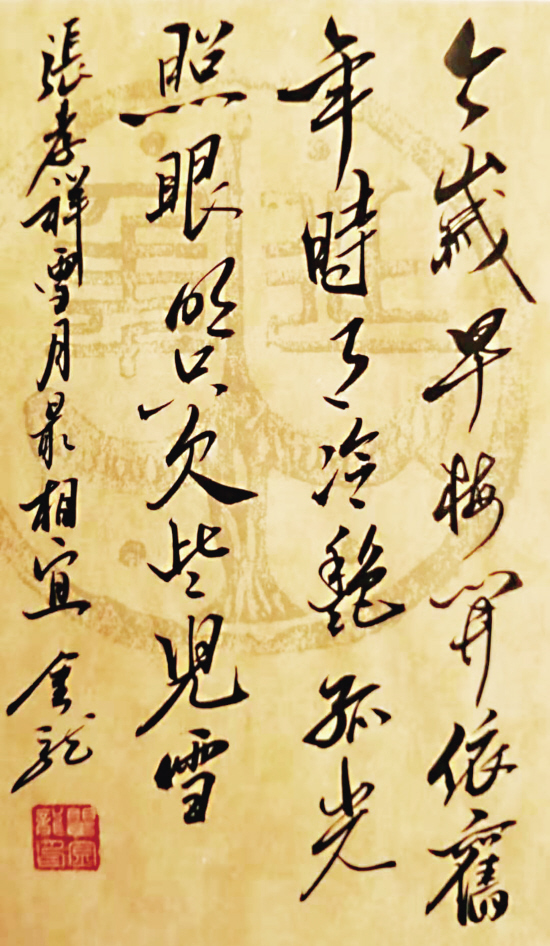 今歲早梅開依舊
年時月冷艷孤光
照眼明只欠些兒雪
張孝祥雪月最相宜 金龍